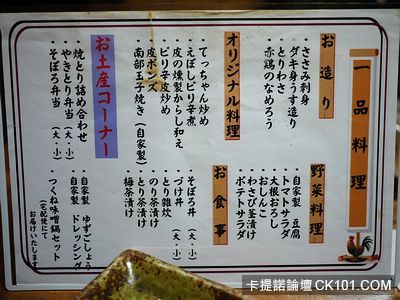 一品料理
お造り
ささみ刺身
ダキ身うす造り
とりわさ
赤鶏のなめろう
野菜料理
自家製 豆腐
トマトサラダ
大根おろし
おしんこ
わさび茎漬け
ポテトサラダ
オリジナル料理
てっちゃん炒め
えぼしビリ辛煮
皮の燻製からし和え
ピリ辛皮炒め
皮ポンズ
南部玉子焼き(自家製)
お食事
そぼろ丼(大・小)
づけ丼(大・小)
とり雑炊
のり茶漬け
とり茶漬け
梅茶漬け
お土産コーナー
焼とり詰め合わせ
やきとり弁当(大・小)
そぼろ弁当(大・小)
自家製 ゆずごしょう
自家製 ドレッシング
つくね味噌鍋セット
(宅配便にてお届けいたします)
卡提諾論壇CK101.COM